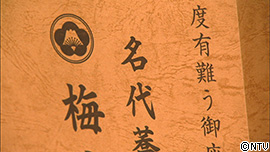 度有難う御座
名代蕎
梅
©NTV